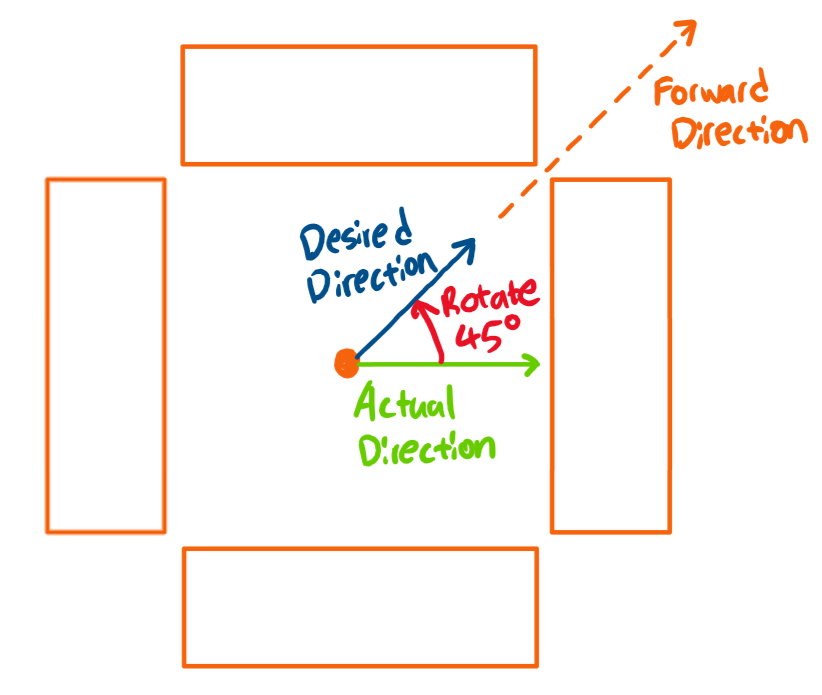 Forward
Direction
Desired
Direction
Rotate
45°
Actual
Direction